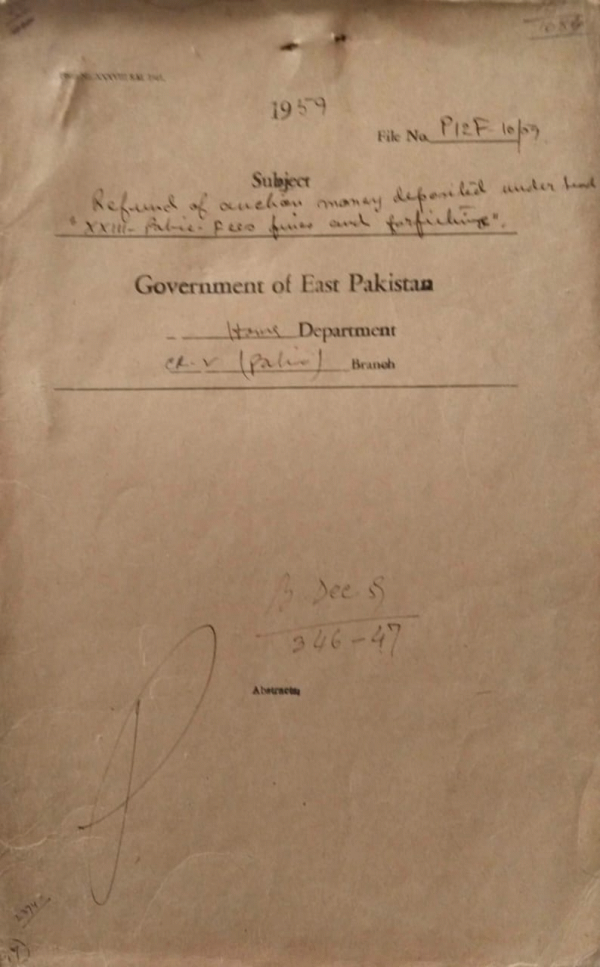 1959
File No. P12F-10/59
Subject
Refund of auction money deposited under head
"XXIII-Police-Fees fines and forfeitures".
Government of East Pakistan
Home Department
(Police) Branch
B Dec 59
346-47
Abstracts